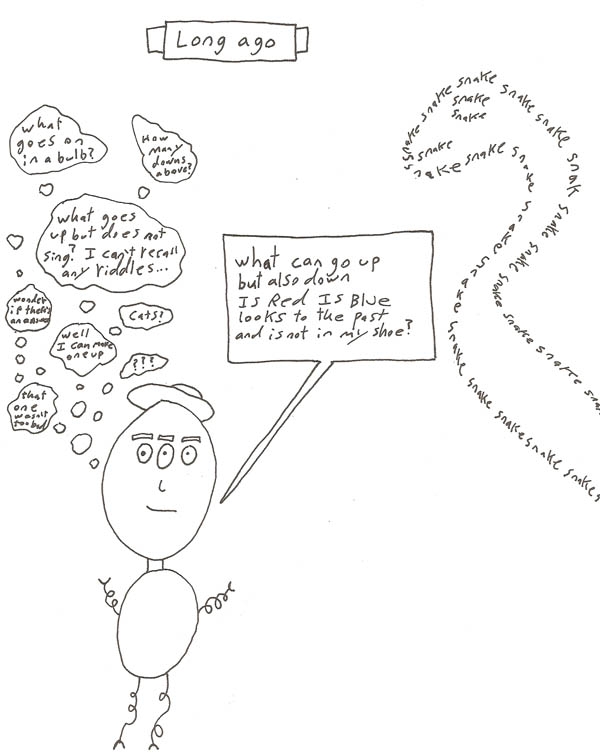 Long ago
what
goes on
in a bulb?
How
many
downs
above?
what goes
up but does not
sing? I can't recall
any riddles...
wonder
if there's
an answer
Cats?
well
I can move
one up
???
that
one
wasn't
too bad
what can go up
but also down
Is Red Is Blue
looks to the past
and is not in my shoe?
snake snake snake snake snake snak snake snake snake snake snake snake sna
snake
snake
ssnake
nake snake snake snake snake snake snake snake snake snake snakes